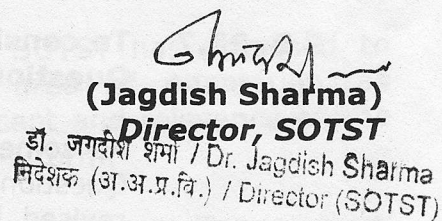 (Jagdish Sharma)
Director, SOTST
डॉ. जगदीश शर्मा / Dr. Jagdish Sharma
निदेशक (अ.अ.प्र.वि.) / Director (SOTST)